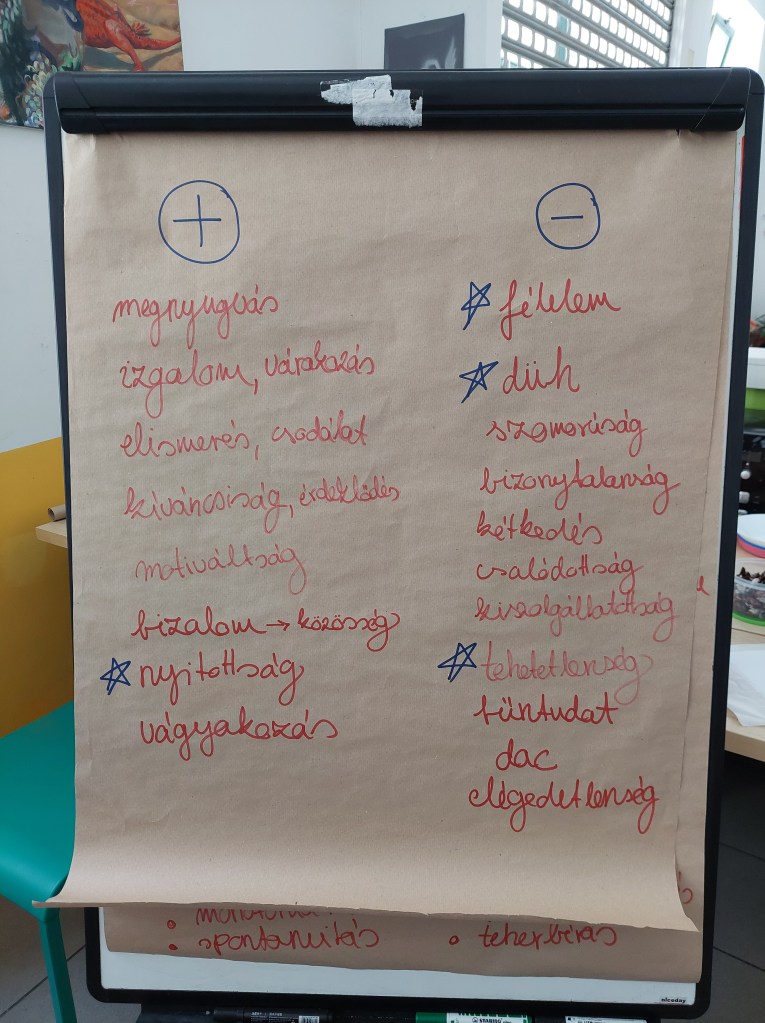 +
megnyugvás
izgalom, várakozás
elismerés, csodálat
kíváncsiság, érdeklődés
motiváltság
bizalom → közösség
nyitottság
vágyakozás
−
félelem
düh
szomorúság
bizonytalanság
kétkedés
csalódottság
kiszolgáltatottság
tehetetlenség
bűntudat
dac
elégedetlenség
• spontanuitás
• teherbírás
nicoday
STABILO